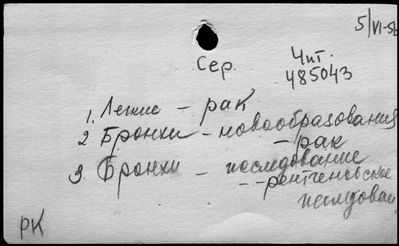 5/VI-56
Сер.
Чит.
485043
1. Легкие - рак
2. Бронхи - новообразования
- рак
3. Бронхи - исследование
-- рентгеновское
исследован
РК